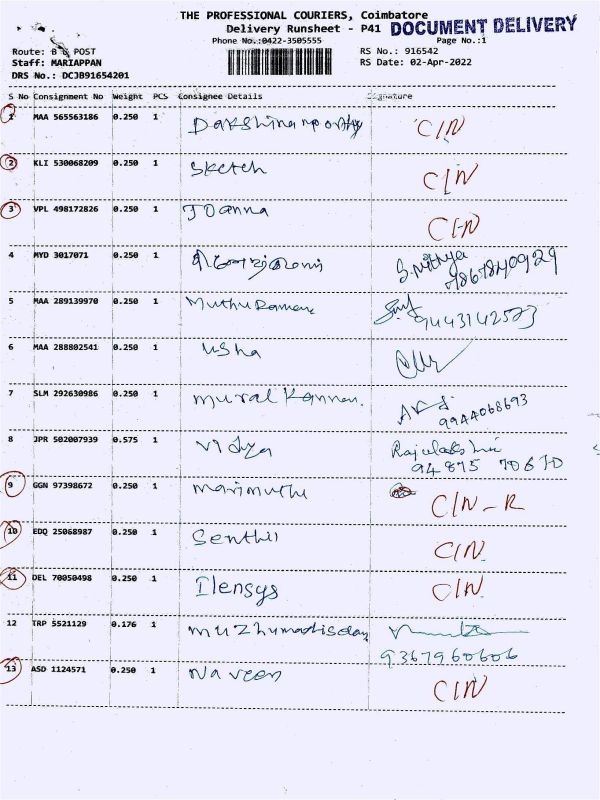 THE PROFESSIONAL COURIERS, Coimbatore
Delivery Runsheet - P41 DOCUMENT DELIVERY
Phone No.:0422-3505555 Page No.:1
Route: B POST RS No.: 916542
Staff: MARIAPPAN RS Date: 02-Apr-2022
DRS No.: DCJB91654201
S No Consignment No Weight PCS Consignee Details Signature
1 MAA 565563186 0.250 1 CIN
2 KLI 530068209 0.250 1 Sketch CIN
3 VPL 498172826 0.250 1 JOanna CIN
4 MYD 3017071 0.250 1 S. Nithya
5 MAA 289139970 0.250 1 Muthu Raman
9443142523
6 MAA 288802541 0.250 1 usha
7 SLM 292630986 0.250 1 mural Kannan.
9944068693
8 JPR 502007939 0.575 1 vidya Rajalakshmi
94875 70670
9 GGN 97398672 0.250 1 marimuthu CIN - R
10 EDQ 25068987 0.250 1 Senthil CIN
11 DEL 70050498 0.250 1 Ilensys CIN
12 TRP 5521129 0.176 1
9367960606
13 ASD 1124571 0.250 1 Naveen CIN